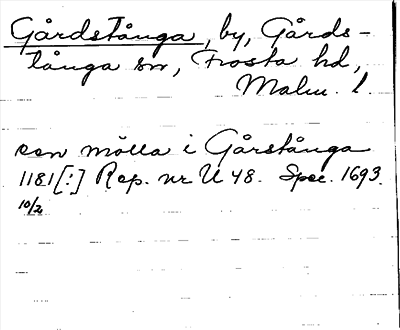 Gårdstånga, by, Gårds-
tånga sn, Frosta hd,
Malm. l.
een mölla i Gårstånga
1181[:] Rep. nr U 48. Spec. 1693.
10/2